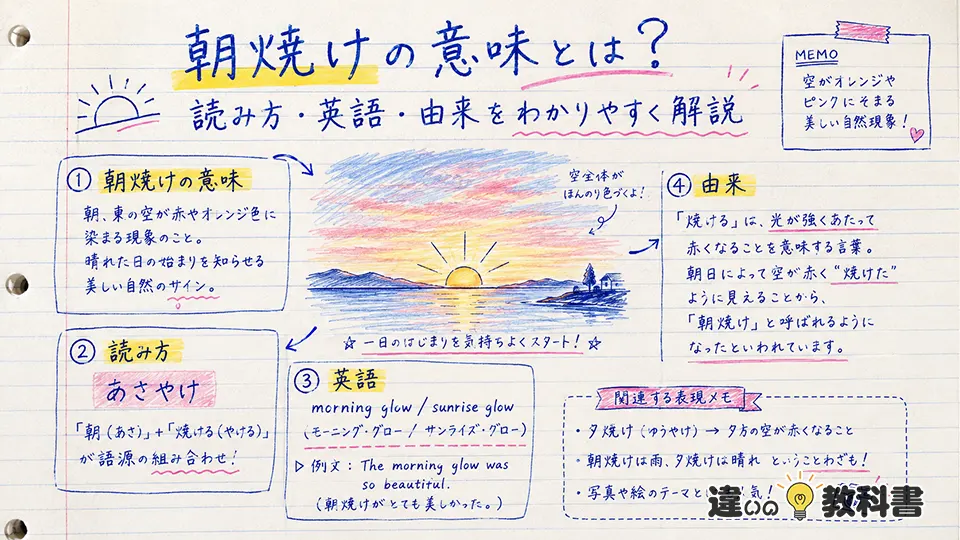 朝焼けの意味とは?
読み方・英語・由来をわかりやすく解説
MEMO
空がオレンジや
ピンクにそまる
美しい自然現象!
① 朝焼けの意味
朝、東の空が赤やオレンジ色に
染まる現象のこと。
晴れた日の始まりを知らせる
美しい自然のサイン。
空全体が
ほんのり色づくよ!
☆ 一日のはじまりを気持ちよくスタート! ☆
② 読み方
あさやけ
「朝(あさ)」+「焼ける(やける)」
が語源の組み合わせ!
③ 英語
morning glow / sunrise glow
(モーニング・グロー / サンライズ・グロー)
▷ 例文: The morning glow was
so beautiful.
(朝焼けがとても美しかった。)
④ 由来
「焼ける」は、光が強くあたって
赤くなることを意味する言葉。
朝日によって空が赤く“焼けた”
ように見えることから、
「朝焼け」と呼ばれるように
なったといわれています。
関連する表現メモ
・夕焼け(ゆうやけ)→ 夕方の空が赤くなること
・朝焼けは雨、夕焼けは晴れ ということわざも!
・写真や絵のテーマと 気!
違いの教科書